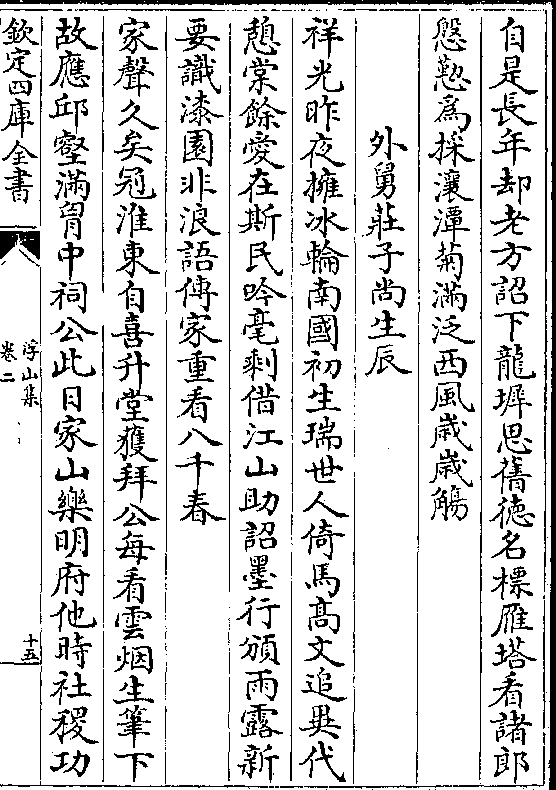 自是長年却老方詔下龍墀思舊徳名標雁塔看諸郎
慇懃爲採瀼潭菊滿泛西風歳歳觴
外舅莊子尚生辰
祥光昨夜擁冰輪南國初生瑞世人倚馬髙文追異代
憩棠餘愛在斯民吟毫剩借江山助詔墨行頒雨露新
要識漆園非浪語傳家重看八千春
家聲久矣冠淮東自喜升堂獲拜公每看雲烟生筆下
故應邱壑滿胷中祠公此日家山樂明府他時社稷功
欽定四庫全書
浮山集
卷二
十五